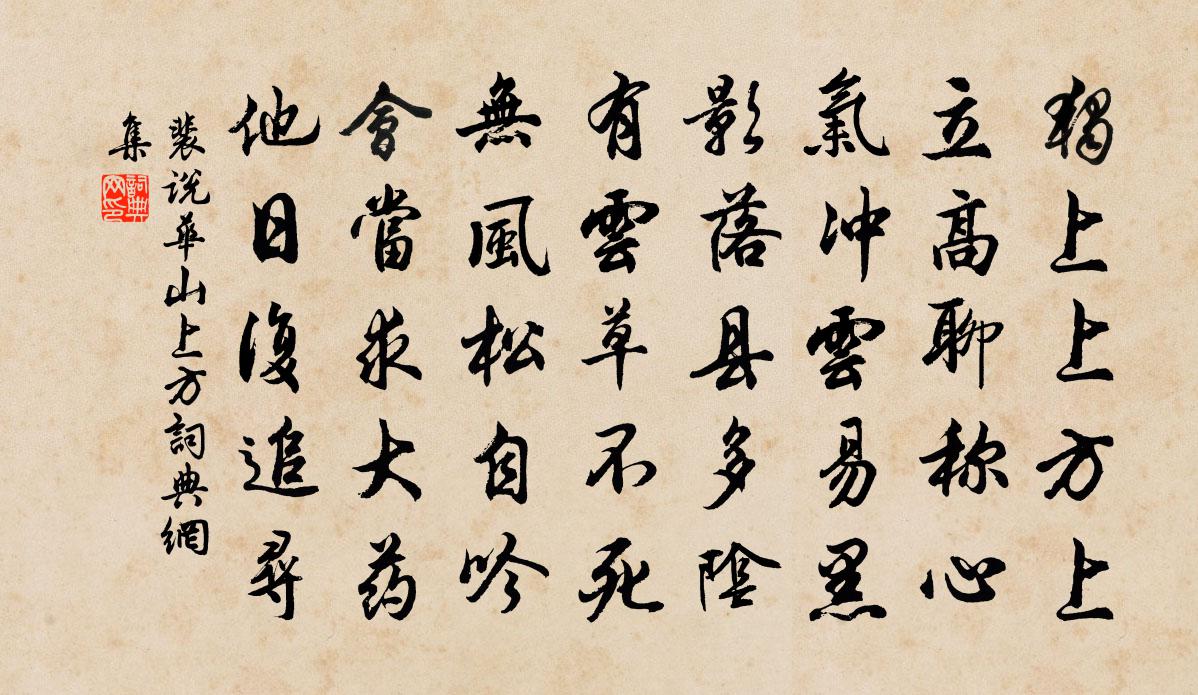 獨上上方上
立高聊称心
氣沖雲易黑
影落县多陰
有雲草不死
無風松自吟
會當求大药
他日復追尋
裴说華山上方詞典網
集
詞典
网印